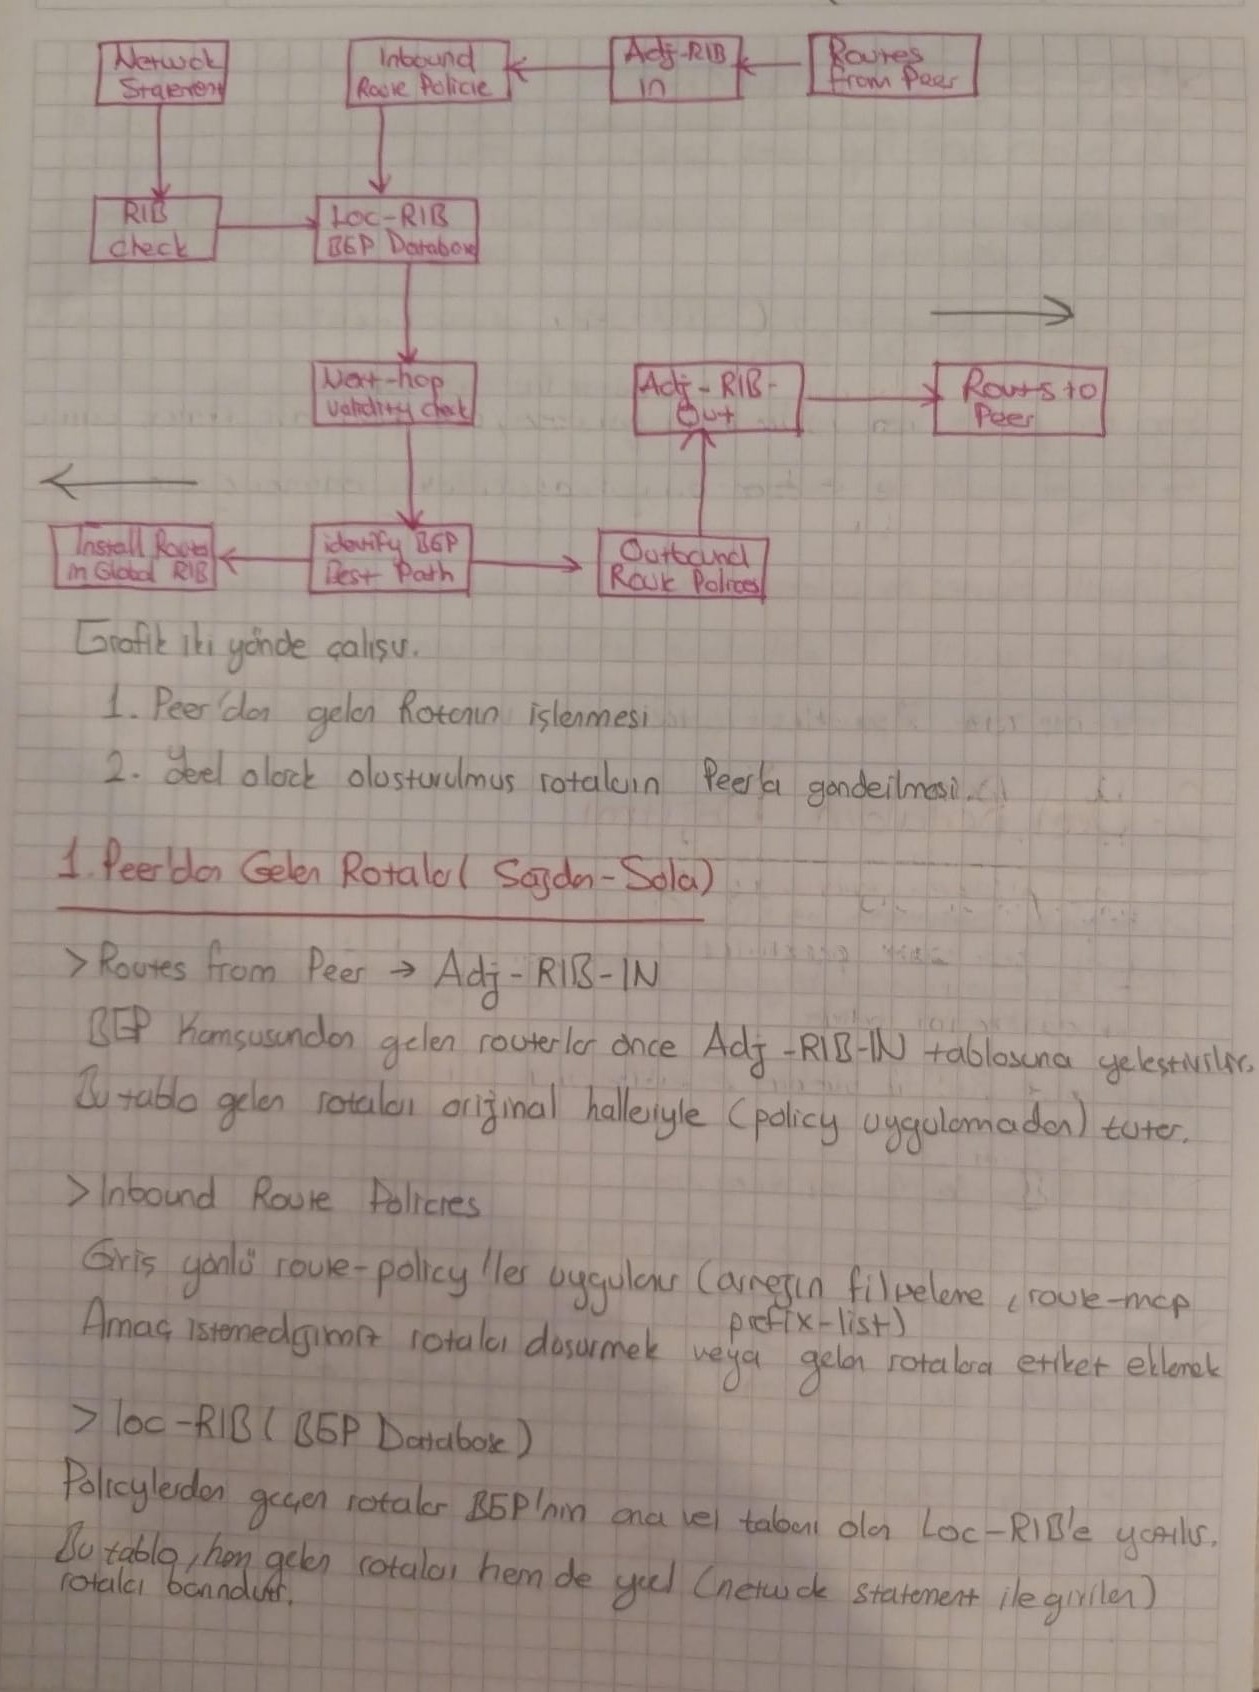 Network Statement
Inbound Route Policie
Adj-RIB in
Routes from Peer
RIB check
Loc-RIB BGP Database
Next-hop validity check
Adj-RIB-Out
Routs to Peer
Install Route in Global RIB
identify BGP Best Path
Outbound Route Policies
Grafik iki yönde çalışır.
1. Peer'dan gelen Rotanın işlenmesi
2. Yerel olarak oluşturulmus rotaların Peer'la gönderilmesi.
1. Peer'dan Gelen Rotalar (Sağdan-Sola)
> Routes from Peer → Adj-RIB-IN
BGP Komşusundan gelen routerlar önce Adj-RIB-IN tablosuna yeleştirilir.
Bu tablo gelen rotaları original halleriyle (policy uygulamadan) tutar.
> Inbound Route Policies
Giris yönlü route-policy'ler uygulanır (örneğin filreleme, route-map
prefix-list)
Amaç istemedğimiz rotaları dosürmek veya gelen rotalara etiket eklemek
> loc-RIB (BGP Database)
Policylerden geçen rotalar BGP'nin ana veri tabanı olan Loc-RIB'e yazılır.
Bu tablo, hem gelen rotaları hem de yerel (netwok statement ile girilen)
rotaları barındırır.